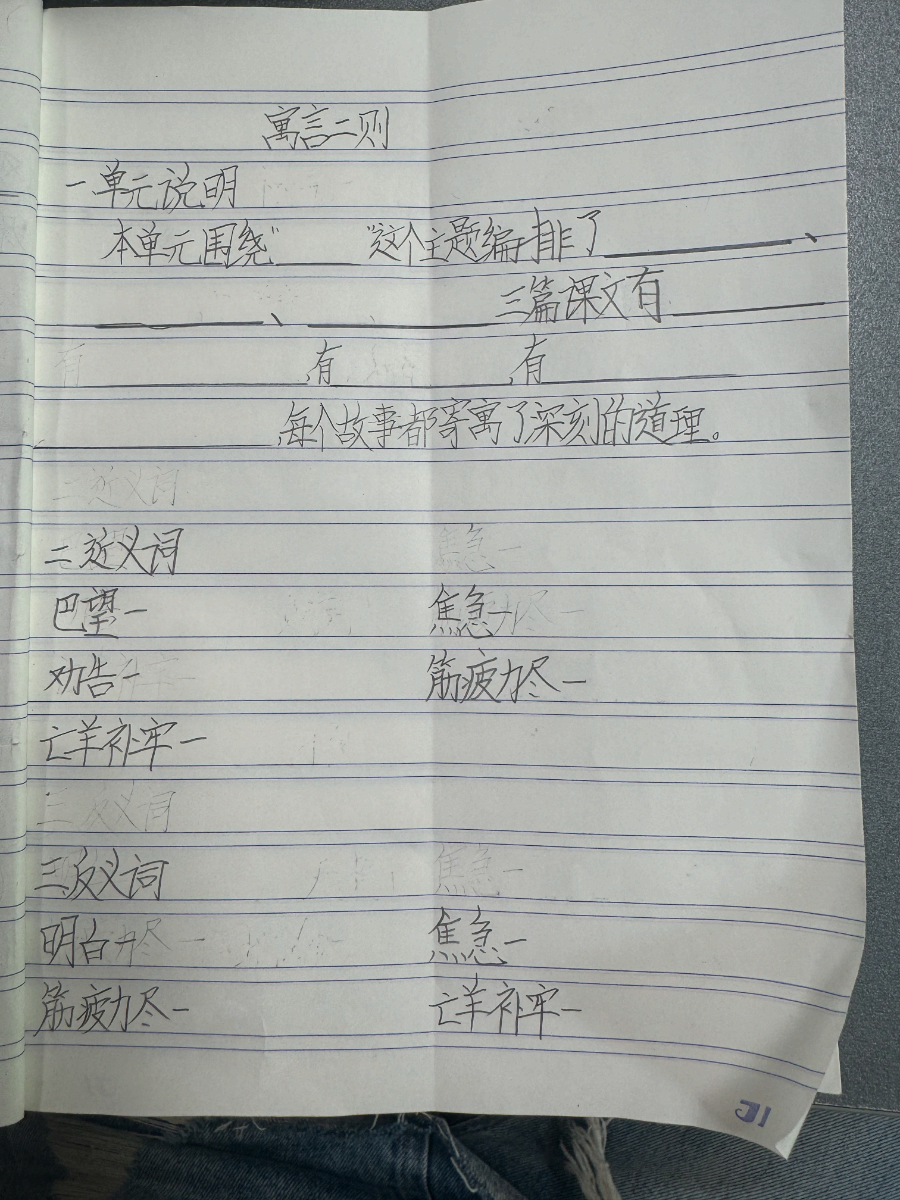 寓言二则
一单元说明
本单元围绕"____"这个主题编排了________、
________、________三篇课文有________
有________有________有________
________每个故事都寄寓了深刻的道理。
三近义词
二近义词 焦急一
巴望一 焦急一
劝告一 筋疲力尽一
亡羊补牢一
三反义词
三反义词 焦急一
明白一 焦急一
筋疲力尽一 亡羊补牢一
31